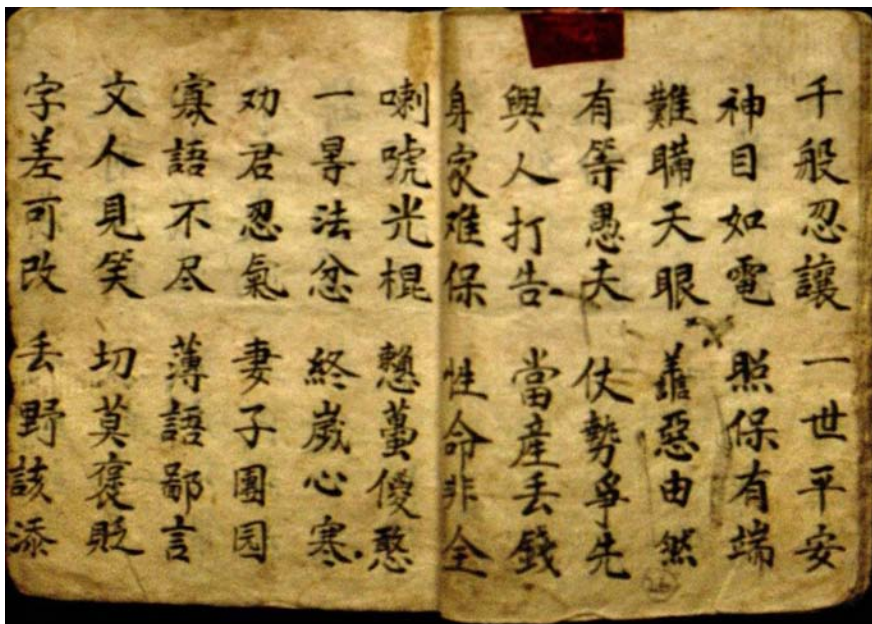 千般忍讓 一世平安
神目如電 照保有端
難瞞天眼 善惡由然
有等愚夫 仗勢爭先
興人打告 當産丢錢
身家难保 性命非全
喇唬光棍 傻憨
一㝵法忿 終歲心寒
劝君忍氣 妻子團园
寡語不尽 薄語鄙言
文人見笑 切莫褒貶
字差可改 丢野該添